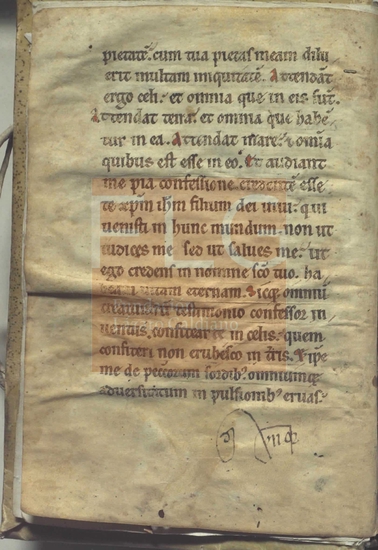 pietatē. cum tua pietas meam dilu
erit multam iniquitatē. Attendāt
ergo celi. et omnia que in eis sūt.
Attendat terra. et omnia que habē
tur in ea. Attendat mare. et omīa
quibus est esse in eo. Et audiant
me pia confessione credentē esse
te xp̄m ih̄m filium dei uiui. qui
uenisti in hunc mundum. non ut
iudices me sed ut salues me. ut
ego credens in nomine sc̄o tuo. ha
uitam eternam. Sicq; omniū
testimonio confessor in
uentus. confitear te in celis. quem
confiteri non erubesco in t̄ris.
me de peccatorum sordib; omniumq;
in pulsionib; eruas.